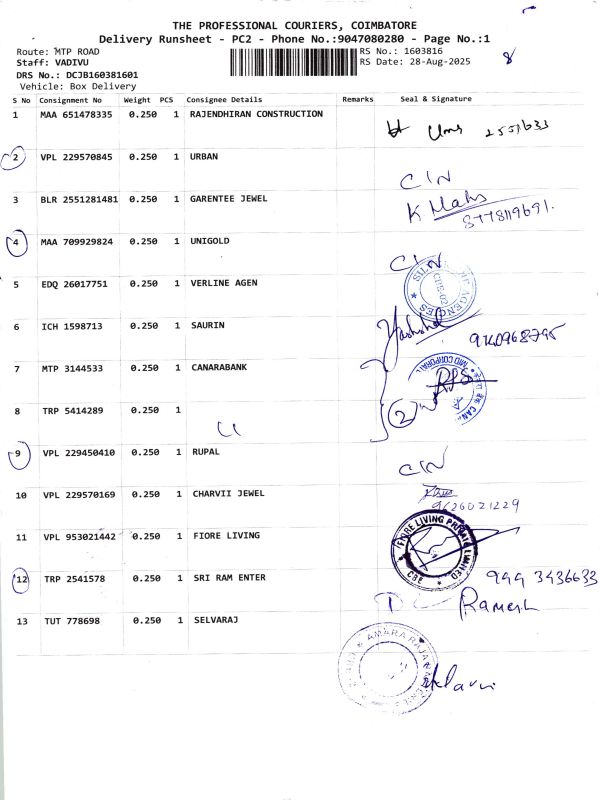 THE PROFESSIONAL COURIERS, COIMBATORE
Delivery Runsheet - PC2 - Phone No.:9047080280 - Page No.:1
Route: MTP ROAD
RS No.: 1603816
Staff: VADIVU
RS Date: 28-Aug-2025
8
DRS No.: DCJB160381601
Vehicle: Box Delivery
S No Consignment No Weight PCS Consignee Details Remarks Seal & Signature
1 MAA 651478335 0.250 1 RAJENDHIRAN CONSTRUCTION
2 VPL 229570845 0.250 1 URBAN
C/N
3 BLR 2551281481 0.250 1 GARENTEE JEWEL
K Mahs
8778119691.
4 MAA 709929824 0.250 1 UNIGOLD
C/N
5 EDQ 26017751 0.250 1 VERLINE AGEN
AGENCIES
6 ICH 1598713 0.250 1 SAURIN
9140968795
7 MTP 3144533 0.250 1 CANARABANK
8 TRP 5414289 0.250 1
2
9 VPL 229450410 0.250 1 RUPAL
C/N
10 VPL 229570169 0.250 1 CHARVII JEWEL
9626021229
11 VPL 953021442 0.250 1 FIORE LIVING
FIORE LIVING PRIVATE LIMITED
CBE
12 TRP 2541578 0.250 1 SRI RAM ENTER
944 3436633
Ramesh
13 TUT 778698 0.250 1 SELVARAJ